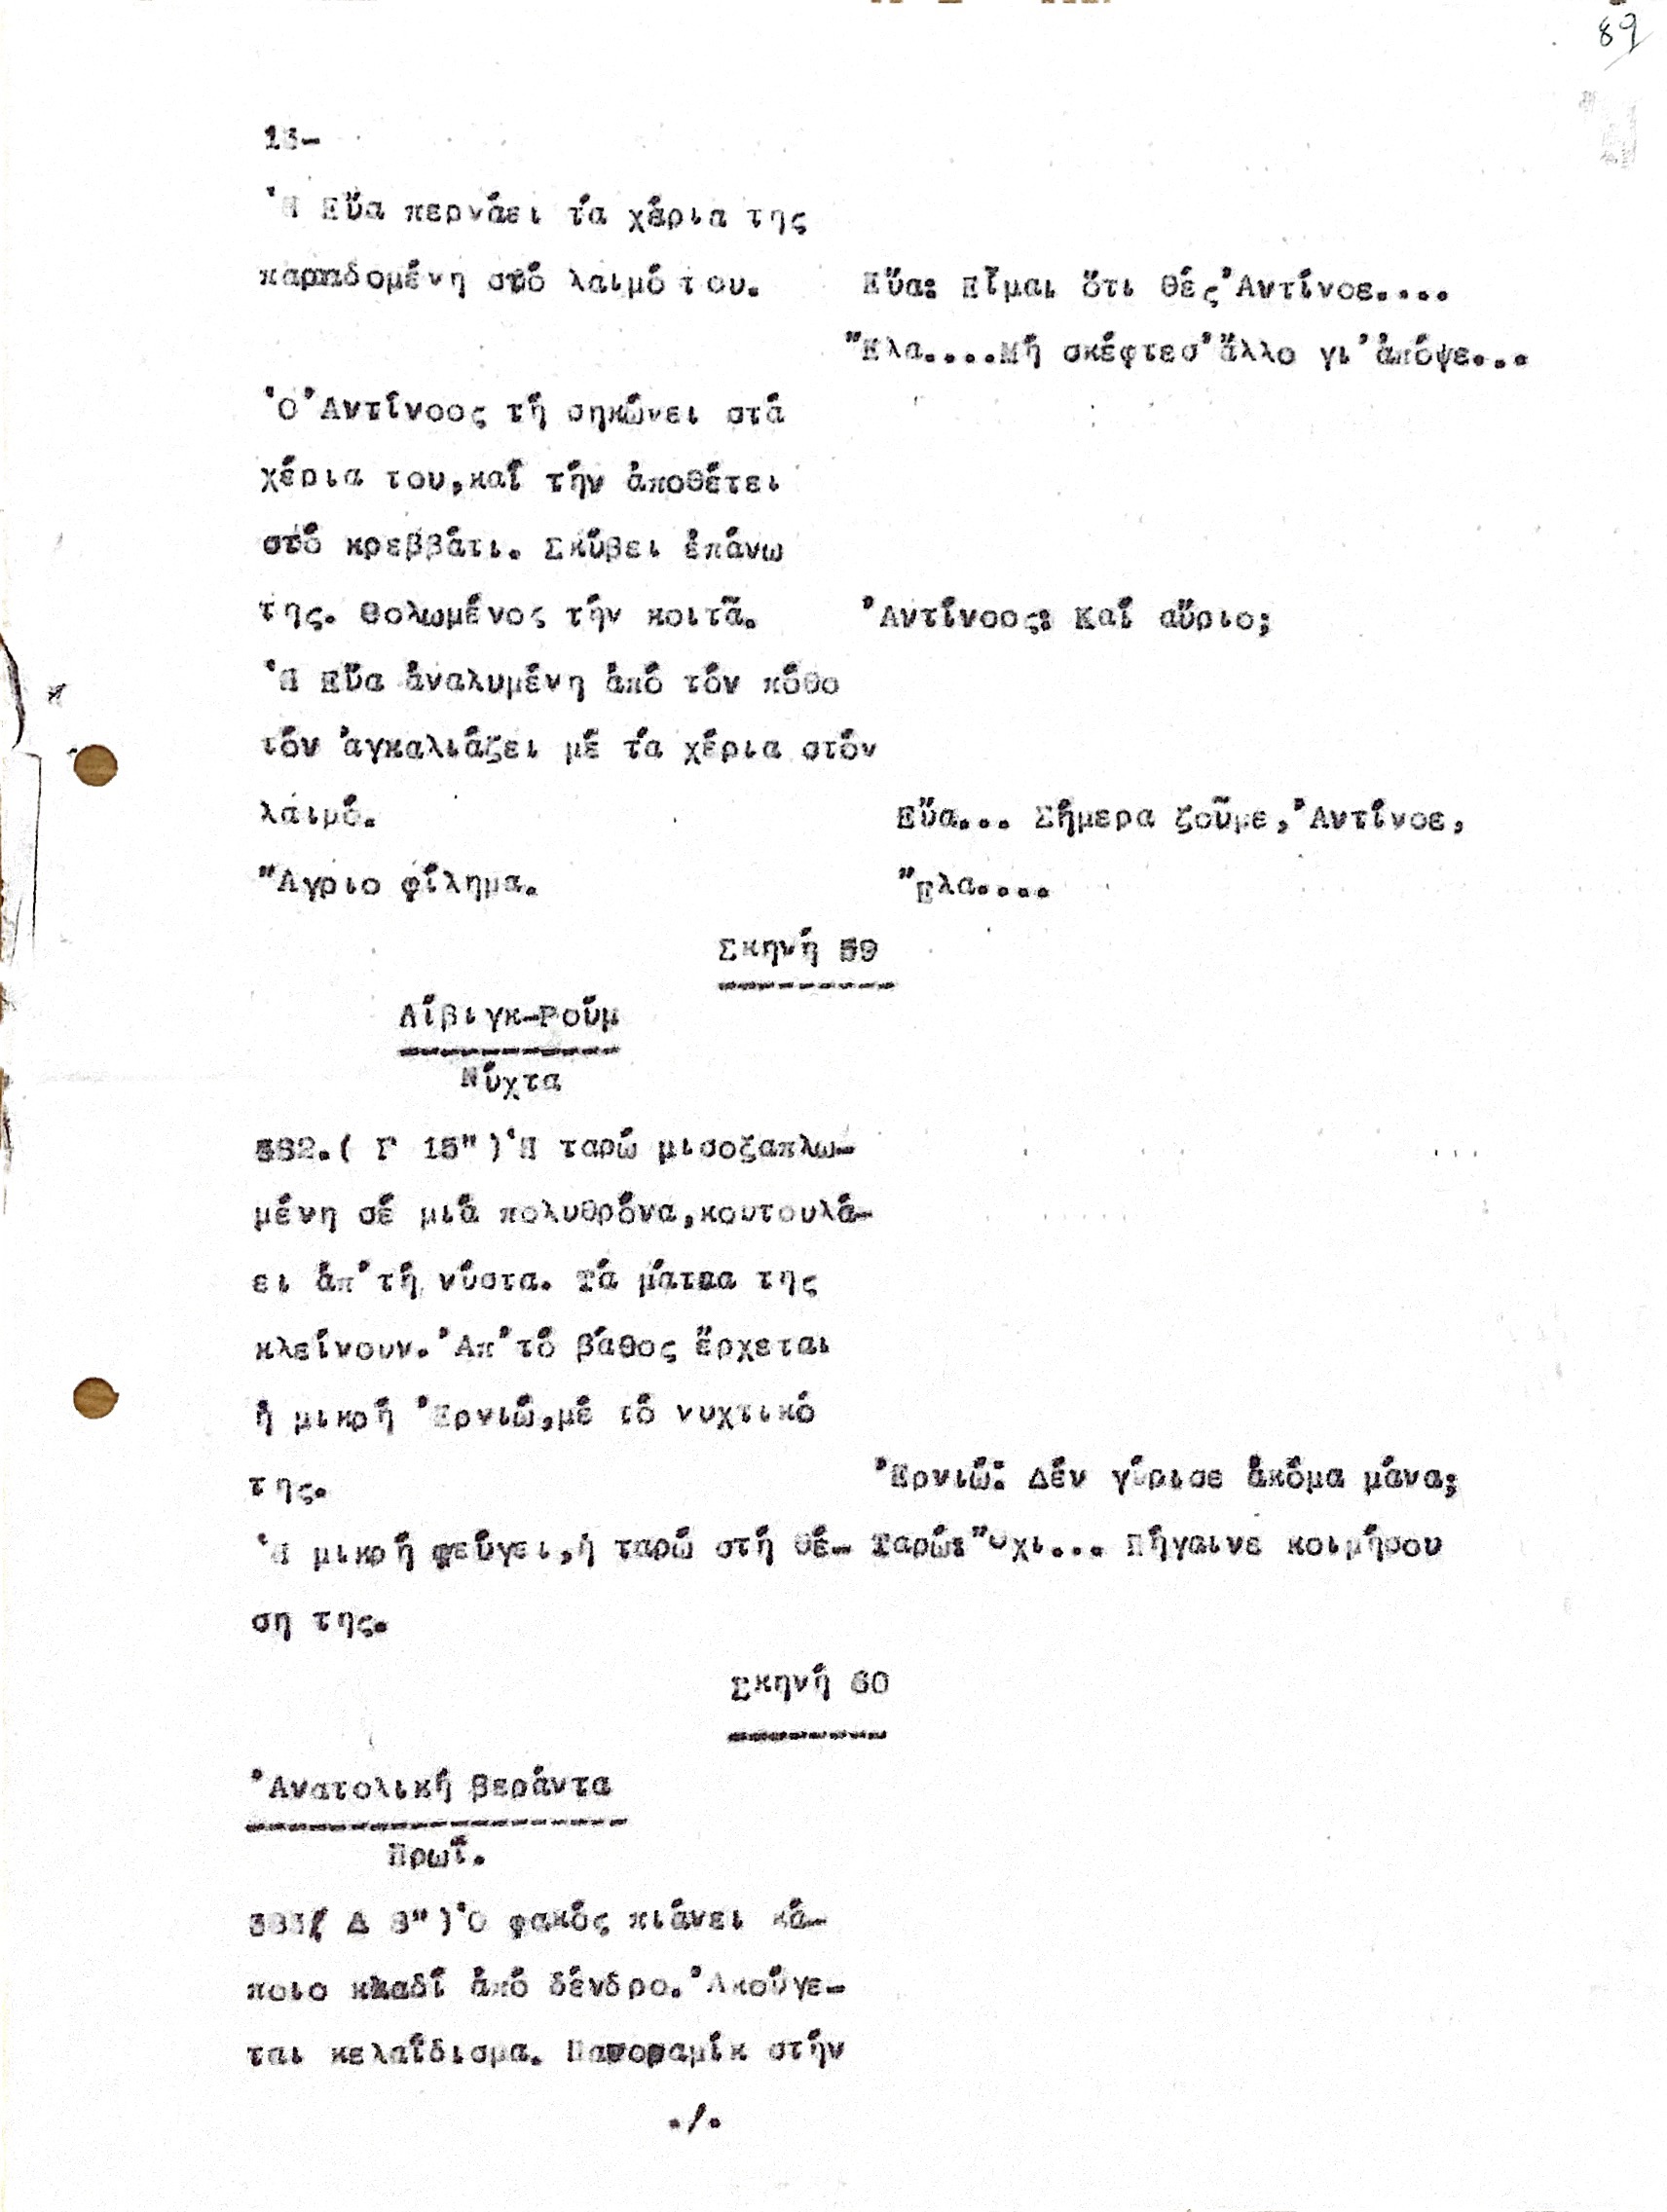 89
13-
Ἡ Εὔα περνάει τά χέρια της
παραδομένη στό λαιμό του. Εὔα: Εἶμαι ὅτι θές Ἀντίνοε....
Ἔλα....Μή σκέφτεσ' ἄλλο γι' ἀπόψε...
Ὁ Ἀντίνοος τή σηκώνει στά
χέρια του,καί τήν ἀποθέτει
στό κρεββάτι. Σκύβει ἐπάνω
της. Θολωμένος τήν κοιτᾶ. Ἀντίνοος: Καί αὔριο;
Ἡ Εὔα ἀναλυμένη ἀπό τόν πόθο
τόν ἀγκαλιάζει μέ τά χέρια στόν
λαιμό. Εὔα... Σήμερα ζοῦμε, Ἀντίνοε,
Ἄγριο φίλημα. Ἔλα....
Σκηνή 59
Λίβιγκ-Ρούμ
Νύχτα
582.( Γ 15")Ἡ ταρώ μισοξαπλω-
μένη σέ μιά πολυθρόνα,κουτουλά-
ει ἀπ' τή νύστα. Τά μάτια της
κλείνουν. Ἀπ' τό βάθος ἔρχεται
ἡ μικρή Ἐρνιώ,μέ τό νυχτικό
της. Ἐρνιώ: Δέν γύρισε ἀκόμα μάνα;
Ἡ μικρή φεύγει,ἡ ταρώ στή θέ- Ταρώ: Ὄχι... Πήγαινε κοιμήσου
ση της.
Σκηνή 60
Ἀνατολική βεράντα
Πρωΐ.
583( Δ 8")Ὁ φακός πιάνει κά-
ποιο κλαδί ἀπό δένδρο. Ἀκούγε-
ται κελαΐδισμα. Πανοραμίκ στήν
./.